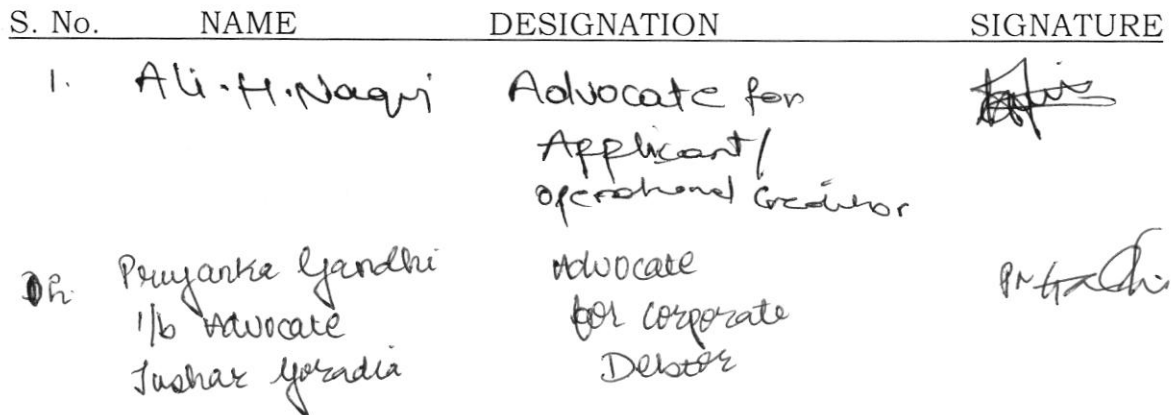 S. No. NAME DESIGNATION SIGNATURE
1. Ali.H.Naqvi Advocate for
Applicant/
operational Creditor
Priyanka Gandhi Advocate
i/b Advocate for corporate
Tushar Goradia Debtor